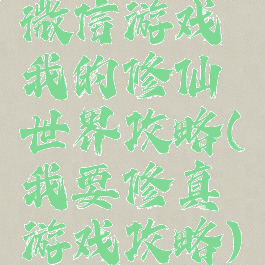 微信游戏
我的修仙
世界攻略(
我要修真
游戏攻略)